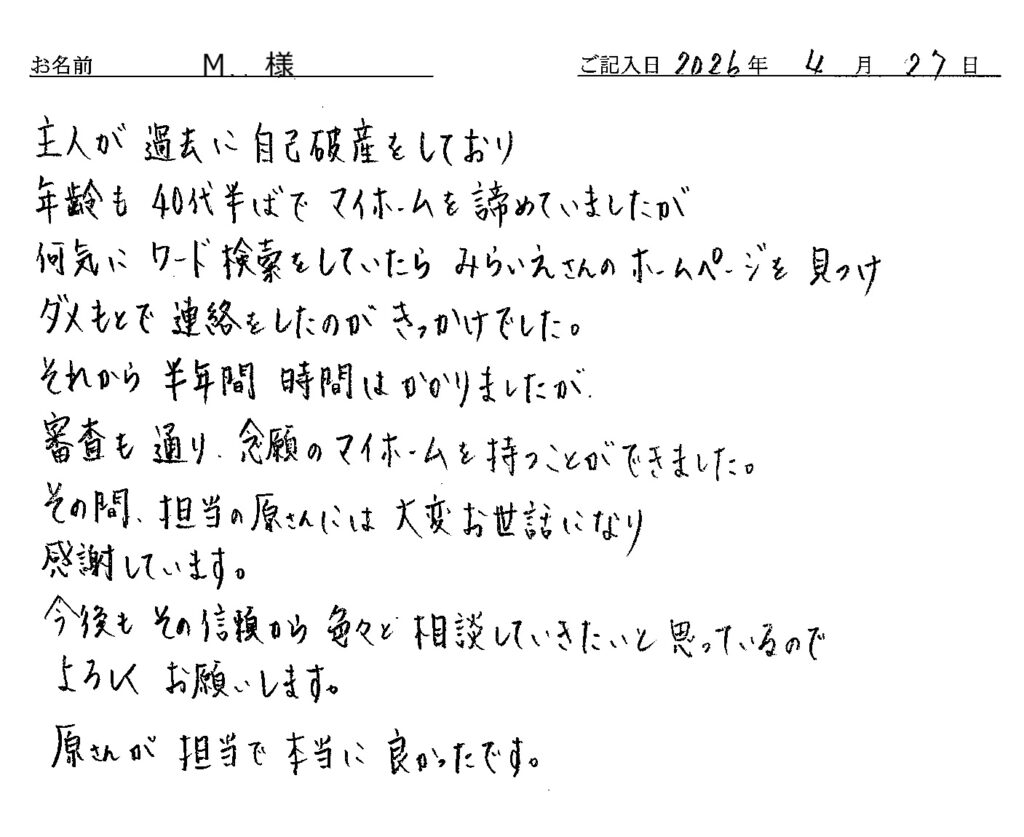 お名前 M. 様 ご記入日 2026年 4月 27日
主人が 過去に 自己破産をしており
年齢も 40代半ばで マイホームを 諦めていましたが
何気に ワード検索をしていたら みらいえさんの ホームページを 見つけ
ダメもとで 連絡をしたのが きっかけでした。
それから 半年間 時間は かかりましたが、
審査も 通り、念願の マイホームを 持つことができました。
その間、担当の原さんには 大変お世話になり
感謝しています。
今後も その信頼から 色々と 相談していきたいと 思っているので
よろしく お願いします。
原さんが 担当で 本当に 良かったです。